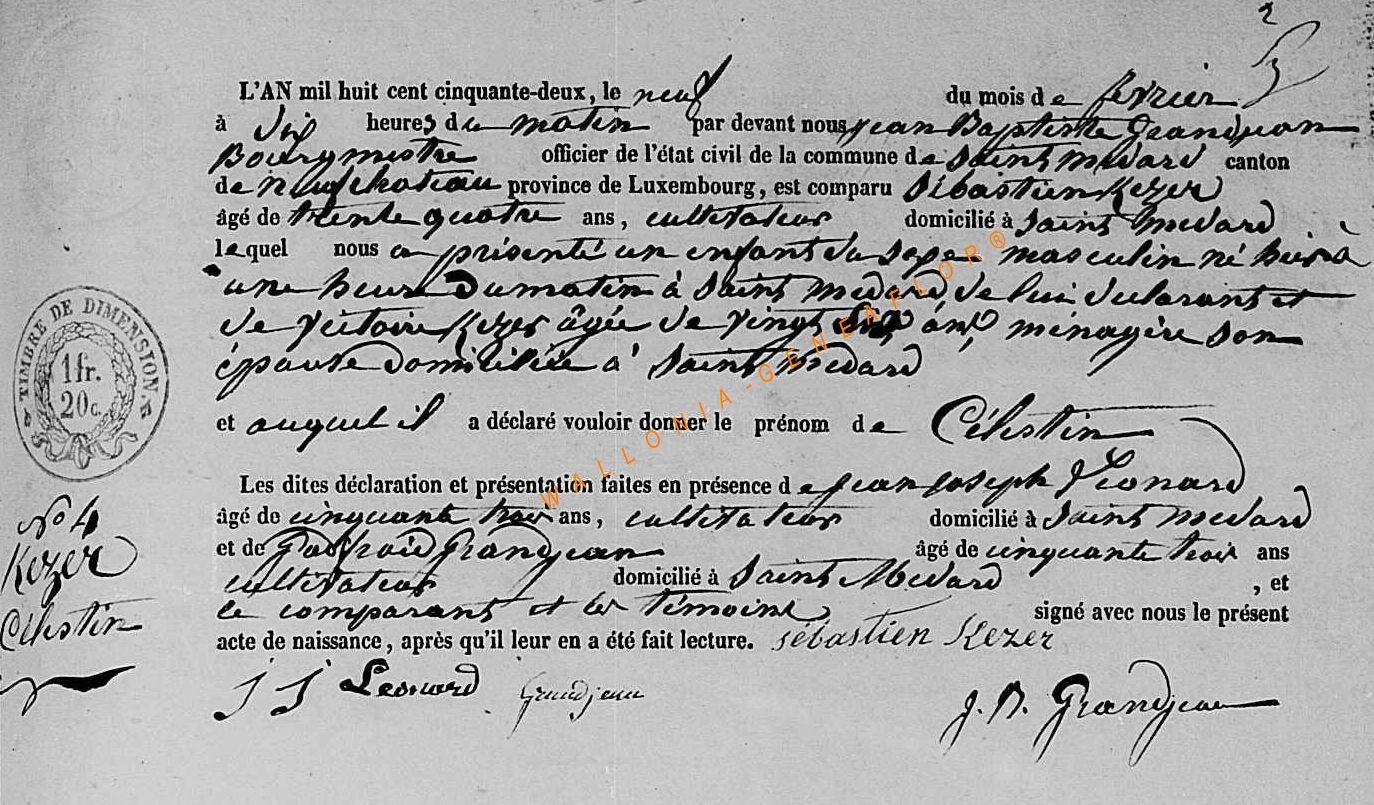 2
L'AN mil huit cent cinquante-deux, le neuf du mois de février
à dix heures du matin par devant nous jean Baptiste Grandjean
Bourgmestre officier de l'état civil de la commune de Saint medard canton
de neufchateau province de Luxembourg, est comparu Sébastien Kezer
âgé de trente quatre ans, cultivateur domicilié à Saint medard
lequel nous a présenté un enfant du sexe masculin né hier à
une heure Du matin à Saint medard, de lui declarant et
de victoire Kezer âgée de vingt ans, ménagère son
épouse domiciliée à Saint medard
et auquel il a déclaré vouloir donner le prénom de Célestin
Les dites déclaration et présentation faites en présence de jean joseph Léonard
âgé de cinquante trois ans, cultivateur domicilié à Saint medard
et de Godfroid Grandjean âgé de cinquante trois ans
cultivateur domicilié à Saint Medard, et
le comparant et les témoins signé avec nous le présent
acte de naissance, après qu'il leur en a été fait lecture. sébastien Kezer
J J Leonard Grandjean J. B. Grandjean
TIMBRE DE DIMENSION
1 fr.
20 c.
No 4
Kezer
Célestin
WALLONIA-GENEAFLOR®